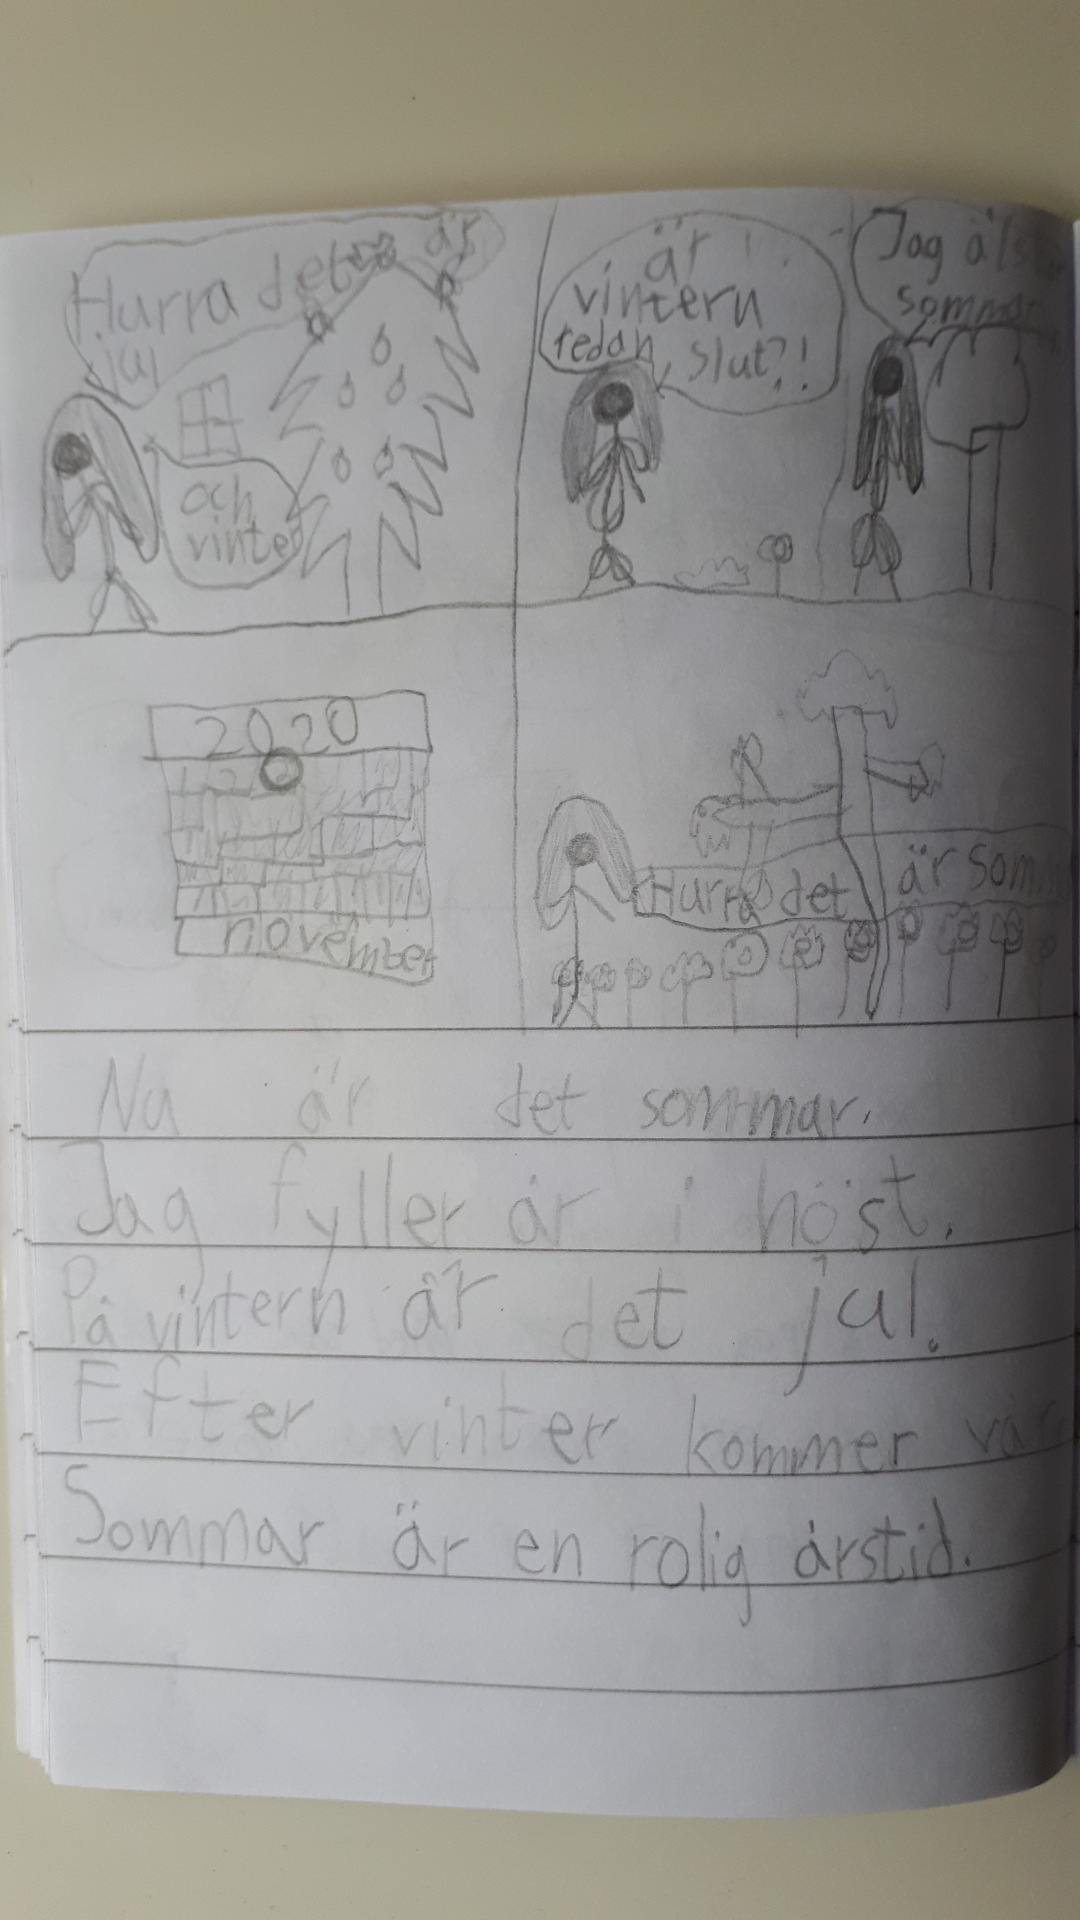 Hurra det är
jul
och
vinter
är
vintern
redan slut?!
Jag älskar
sommar
2020
november
Hurra det är somm
Nu är det sommar.
Jag fyller år i höst.
På vintern är det jul.
Efter vinter kommer vår
Sommar är en rolig årstid.